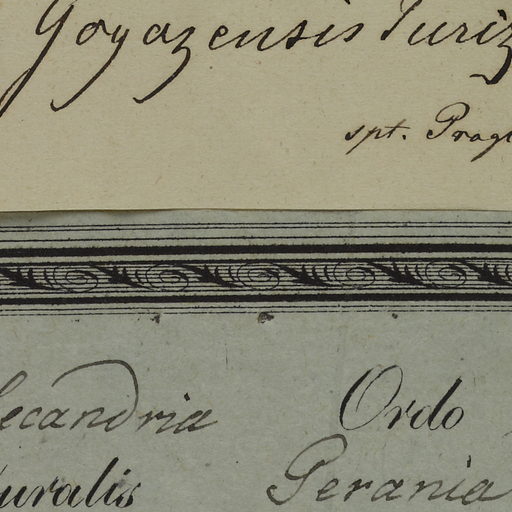 Goyazensis Turiz
spt. Prag
ecandria Ordo
uralis Gerania